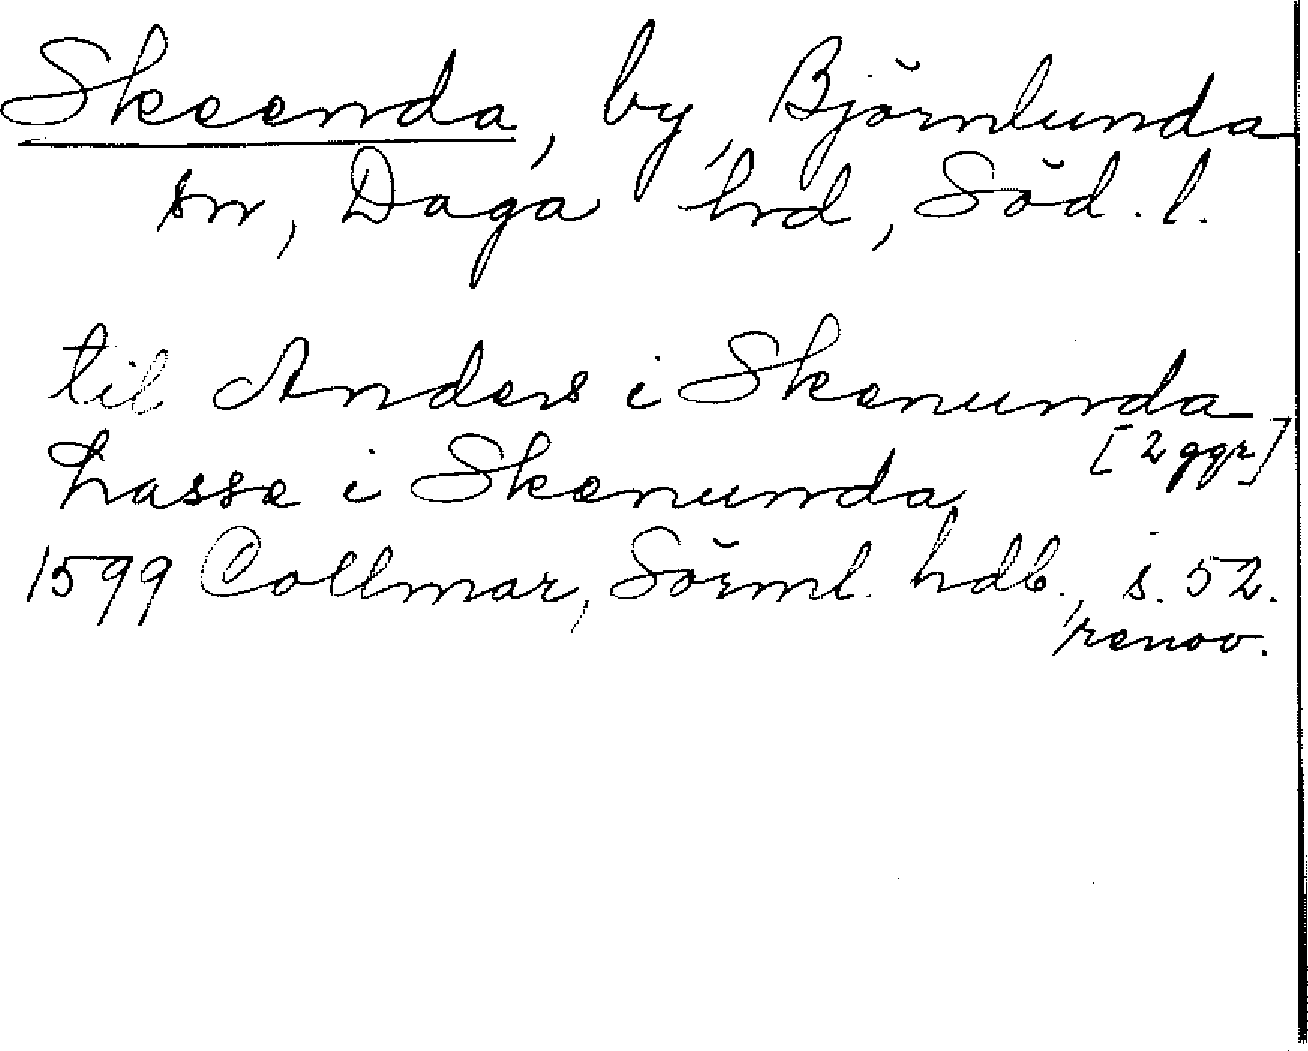 Skeenda, by, Björnlunda
sn, Daga hrd, Söd. l.
til Anders i Skenunda
[2 ggr]
Lasse i Skenunda
1599 Collmar, Sörml. hdb., s. 52.
renov.